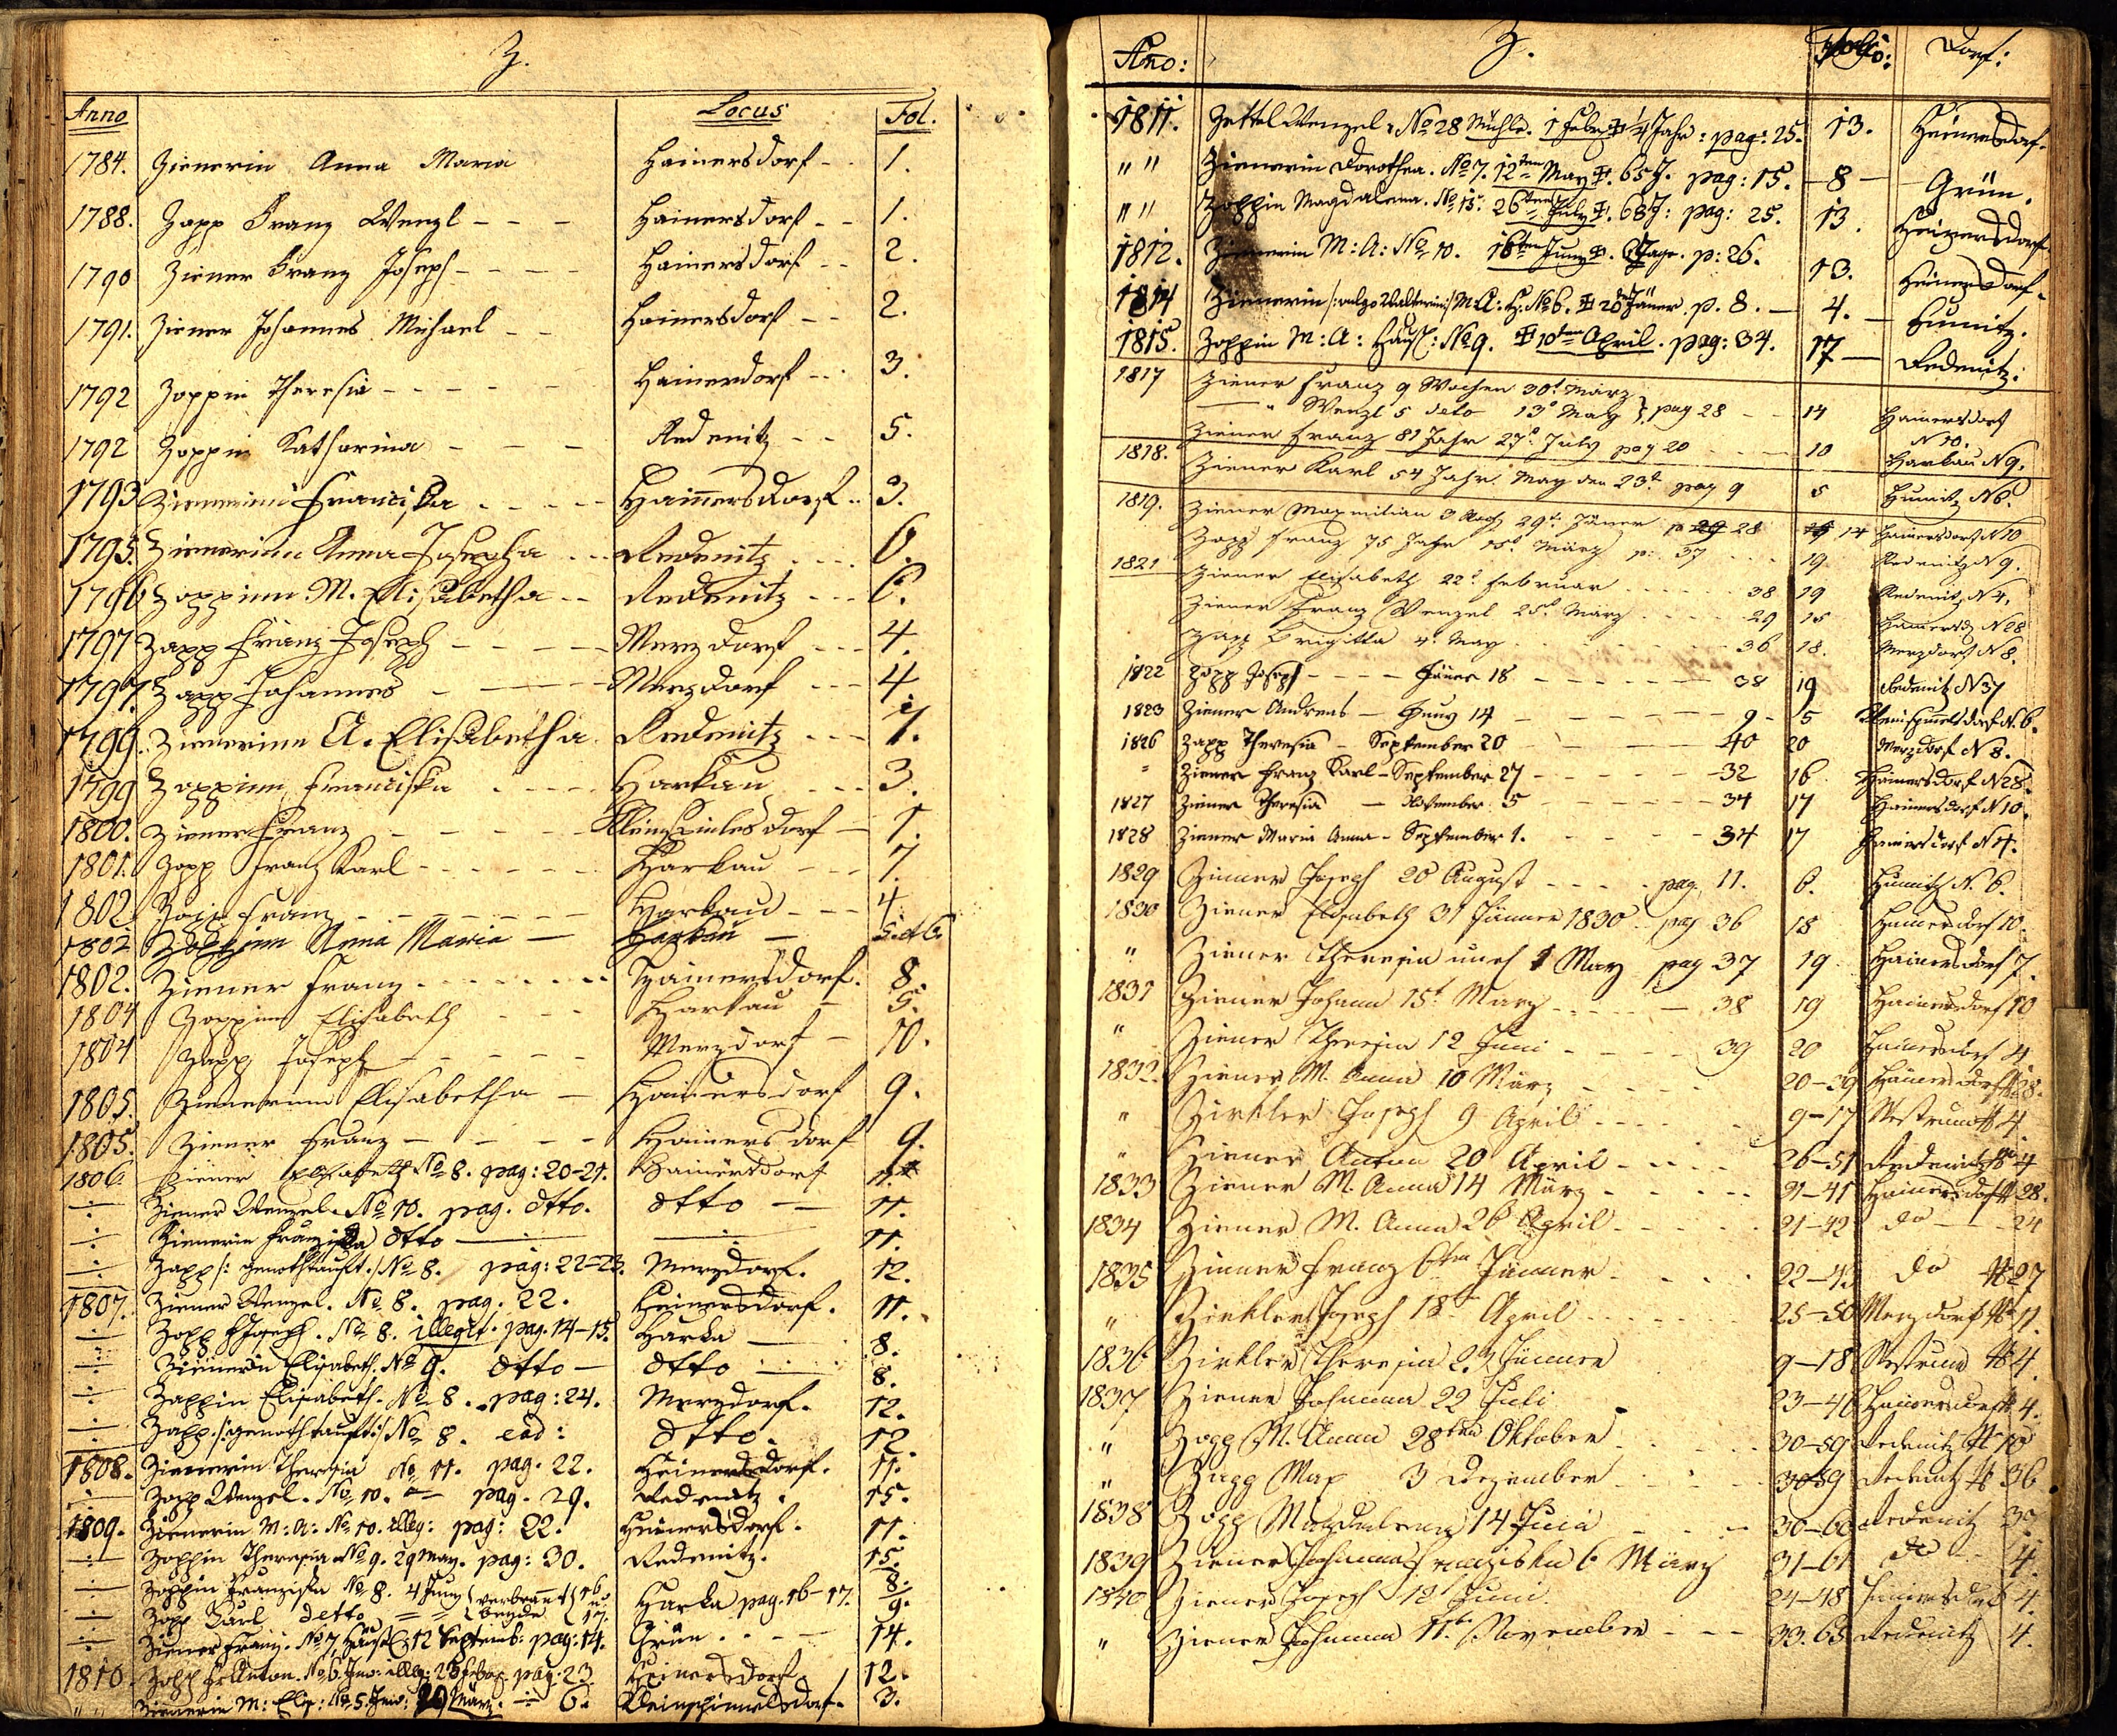 Z.
Anno Locus Fol.
1784. Zienerin Anna Maria Hainersdorf - - 1.
1788. Zapp Franz Wenzl - - - Hainersdorf - - 1.
1790 Ziener Franz Joseph - - - - Hainersdorf - - 2.
1791. Ziener Johannes Michael - - Hainersdorf - - 2.
1792 Zoppin Theresia - - - - - Hainersdorf - - 3.
1792 Zoppin Katharina - - - Redenitz - - 5.
1793 Zienerinn Franciska - - - - Hainersdorf - - 3.
1795. Zienerinn Anna Josepha - - Redenitz - - - 6.
1796 Zoppinn M. Elisabetha - - Redenitz - - - 6.
1797 Zapp Franz Joseph - - - - Merzdorf - - - 4.
1797. Zapp Johannes - - - Merzdorf - - - 4.
1799. Zienerinn A. Elisabetha Redenitz - - - 7.
1799 Zoppinn Franciska - - - - Harkau - - - 3.
1800. Ziener Franz - - - - - 1.
1801. Zopp Franz Karl - - - - - Harkau - - - 7.
1802 Zopp Franz - - - - - - Harkau - - - 4
1802 Zoppinn Anna Maria — Harkau —
1802. Ziener Franz - - - - - - - Hainersdorf. 8.
1804 Zoppinn Elisabeth - - - Harkau — 5.
1804 Zapp Joseph - - - - - Merzdorf — 10.
1805. Zienerinn Elisabetha — Hainersdorf 9.
1805. Ziener Franz - - - - Hainersdorf 9.
1806. Ziener Elisabeth No 8. pag: 20-21. Hainersdorf
Ziener Wenzel. No 10. pag. dtto. dtto — 11.
Zienerin Franziska dtto 11.
Zapp /: genothtauft :/ No 8. pag: 22-23. Merzdorf. 12.
1807. Ziener Wenzel. No 8. pag. 22. Heinersdorf. 11.
Zopp Joseph. No 8. illegit. pag. 14-15. Harka — 8.
Zienerin Elisabeth. No 9. dtto — dtto 8.
Zappin Elisabeth. No 8. pag: 24. Merzdorf. 12.
Zapp /: genothtauft :/ No 8. ead: dtto. 12.
1808. Zienerin Theresia No 11. pag. 22. Heinersdorf. 11.
Zopp Wenzel. No 10. pag. 29. Redenitz. 15.
1809. Zienerin M: A: No 10. illeg: pag: 22. Heinersdorf. 11.
Zoppin Theresia No 9. 29 May. pag: 30. Redenitz. 15.
Zoppin Franziska No 8. 4 Juny } verbrannt { 16 Harka pag. 16-17. 8.
Zopp Karl detto beyde 17. 9.
Ziener Franz. No 7. 12 Septemb: pag: 14. Grün. - - - 14.
1810. Anton. No 6. illeg: pag. 23 Heinersdorf. 12.
" " Zienerin M: Elis: No 5. 20 März. 6. 3.
Z.
Ano: Folio: Dorf:
1811. Zettel Wenzel. No 28 Mühle. 1 Febr. ✝ ¼ Jahr: pag: 25. 13. Heinersdorf.
" " Zienerin Dorothea. No 7. 12ten May ✝. 65 J. pag: 15. — 8 — Grün.
" " Zoppin Magdalena. No 15. 26ten July ✝. 68 J: pag: 25. 13. Heinersdorf.
1812. Zienerin M: A: No 10. 16ten Juny ✝. p: 26. 13. Heinersdorf.
1814 Zienerin M: A: No 6. ✝ 20 Jäner. p. 8. — 4. — Humitz.
1815. Zoppin M: A: No 9. ✝ 10ten April. pag: 34. 17 — Redenitz.
1817 Ziener Franz 9 Wochen 30t März
" Wenzl 5 deto 13t May } pag 28 - - 14 Hainersdorf N 10.
Ziener Franz 81 Jahr 27t July pag 20 - - - 10 Harkau N 9.
1818. Ziener Karl 54 Jahr. May den 23t pag 9 5 Humitz N 6.
1819. Ziener Maxmilian 3 29t Jäner p 29 28 14 Hainersdorf N 10
Zopp Franz 75 Jahr 15t März p: 37 - - - 19. Redenitz N 9.
1821 Ziener Elisabeth 22t Februar - - - - - 38 19 Redenitz N 4.
Ziener Franz Wenzel 25t März - - - - 29 15 Hainersd N 28
Zapp Brigitta 4t May - - - - - 36 18. Merzdorf N 8.
1822 Zopp Joseph - - - - Jäner 18 - - - - - - 38 19 Redenitz N 37
1823 Ziener Andreas — Juny 14 - - - - - - 9 - 5 N. 6.
1826 Zapp Theresia — September 20 - - - - 40 20 Merzdorf N 8.
" Ziener Franz Karl — September 27 - - - - - 32 16 Hainersdorf N 28.
1827 Ziener Theresia — November 5 - - - - - 34 17 Hainersdorf N 10.
1828 Ziener Maria Anna — September 1. - - - - 34 17 Hainersdorf N 4.
1829 Ziener Joseph 20 August - - - - pag. 11. 6. Humitz N. 6.
1830 Ziener Elisabeth 31 Jänner 1830 pag 36 18 Hainersdorf 10.
" Ziener Theresia 1 May pag 37 19 Hainersdorf 7.
1831 Ziener Johann 15t März - - - - — 38 19 Hainersdorf 10
" Ziener Theresia 12 Juni - - - - 39 20 Hainersdorf 4
1832. Ziener M. Anna 10 März - - - - 20-39 Hainersdorf # 28.
" Zirkler Joseph 9 April - - - - 9-17 # 4.
" Ziener Anton 20 April - - - - 26-51 Redenitz # 4
1833 Ziener M. Anna 14 März - - - - - 21-41 Hainersdorf # 28.
1834 Ziener M. Anna 26 April - - - - - 21-42 do - - - 24
1835 Ziener Franz 6ten Jänner - - - - 22-43 do # 27
" Zirkler Joseph 18 April - - - - - - 25-50 Merzdorf # 11.
1836 Zirkler Theresia 23 Jänner 9-18 # 4.
1837 Ziener Johanna 22 Juli 23-46 Hainersdorf # 4.
" Zopp M. Anna 28ten Oktober - - - - 30-59 Redenitz # 10
" Zopp Max 3 Dezember - - - - 30-59 Redenitz # 36
1838 Zopp Magdalena 14 Juni - - - 30-60 Redenitz
1839 Ziener Johanna Franziska 6 März 31-61 do - - 4.
1840 Ziener Joseph 18 Juni. 24-48 Hainersdorf 4.
" Ziener Johanna 11t November - - - 33.65 Redenitz 4.